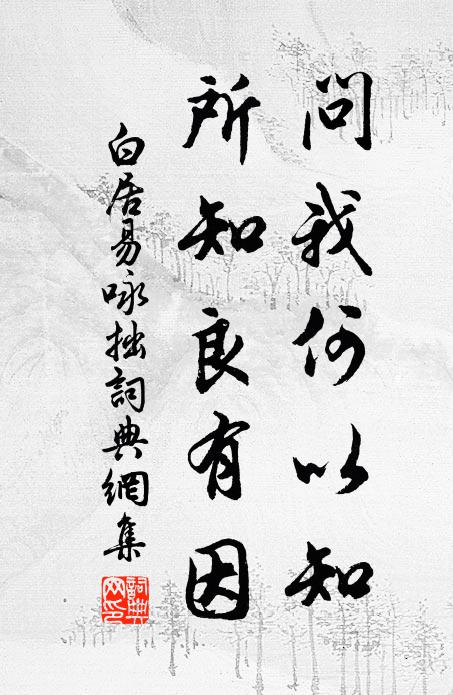 問我何以知
所知良有因
白居易咏拙詞典網集
詞典网印